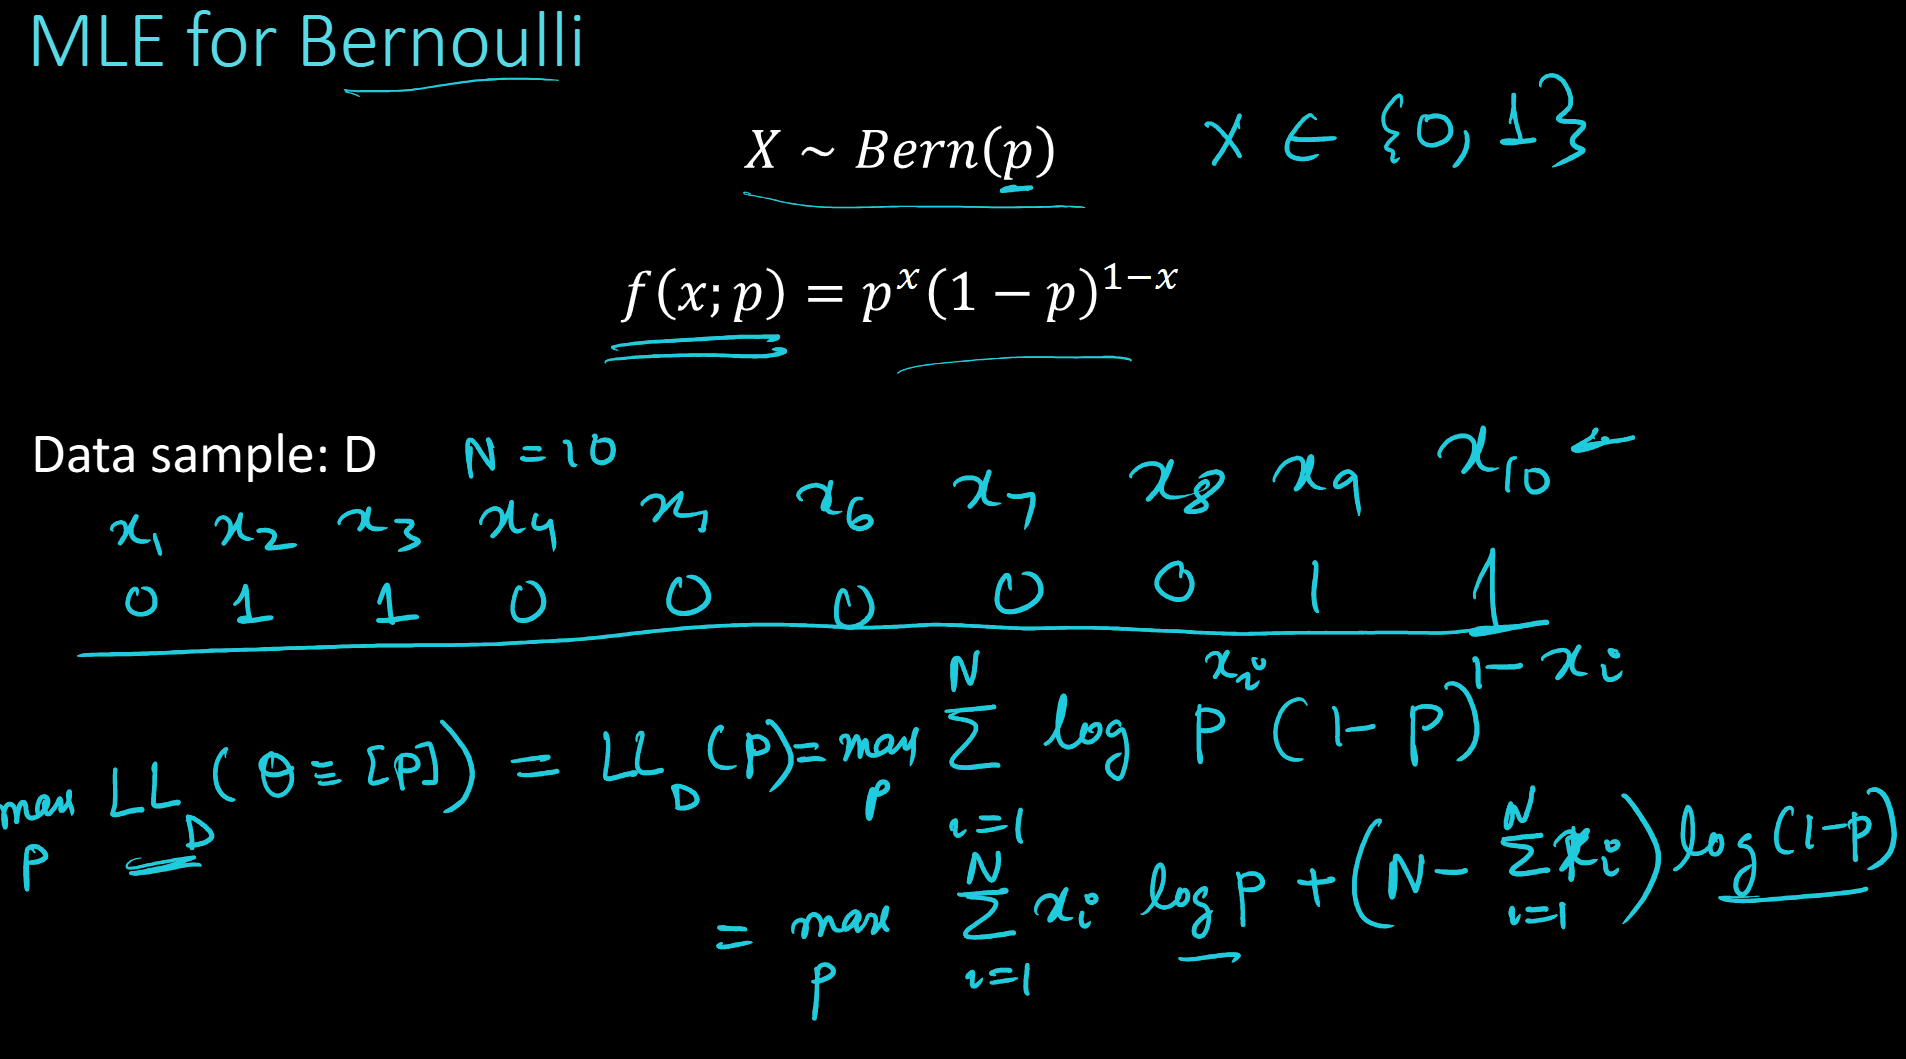 MLE for Bernoulli
X ~ Bern(p) x ∈ {0, 1}
f(x; p) = p^x (1 − p)^{1−x}
Data sample: D N = 10
x_1 x_2 x_3 x_4 x_5 x_6 x_7 x_8 x_9 x_10 ←
0 1 1 0 0 0 0 0 1 1
max_p LL_D (θ ≡ [p]) = LL_D (p) = max_p Σ_{i=1}^{N} log p^{x_i} (1 − p)^{1 − x_i}
= max_p Σ_{i=1}^{N} x_i log p + (N − Σ_{i=1}^{N} x_i) log (1−p)